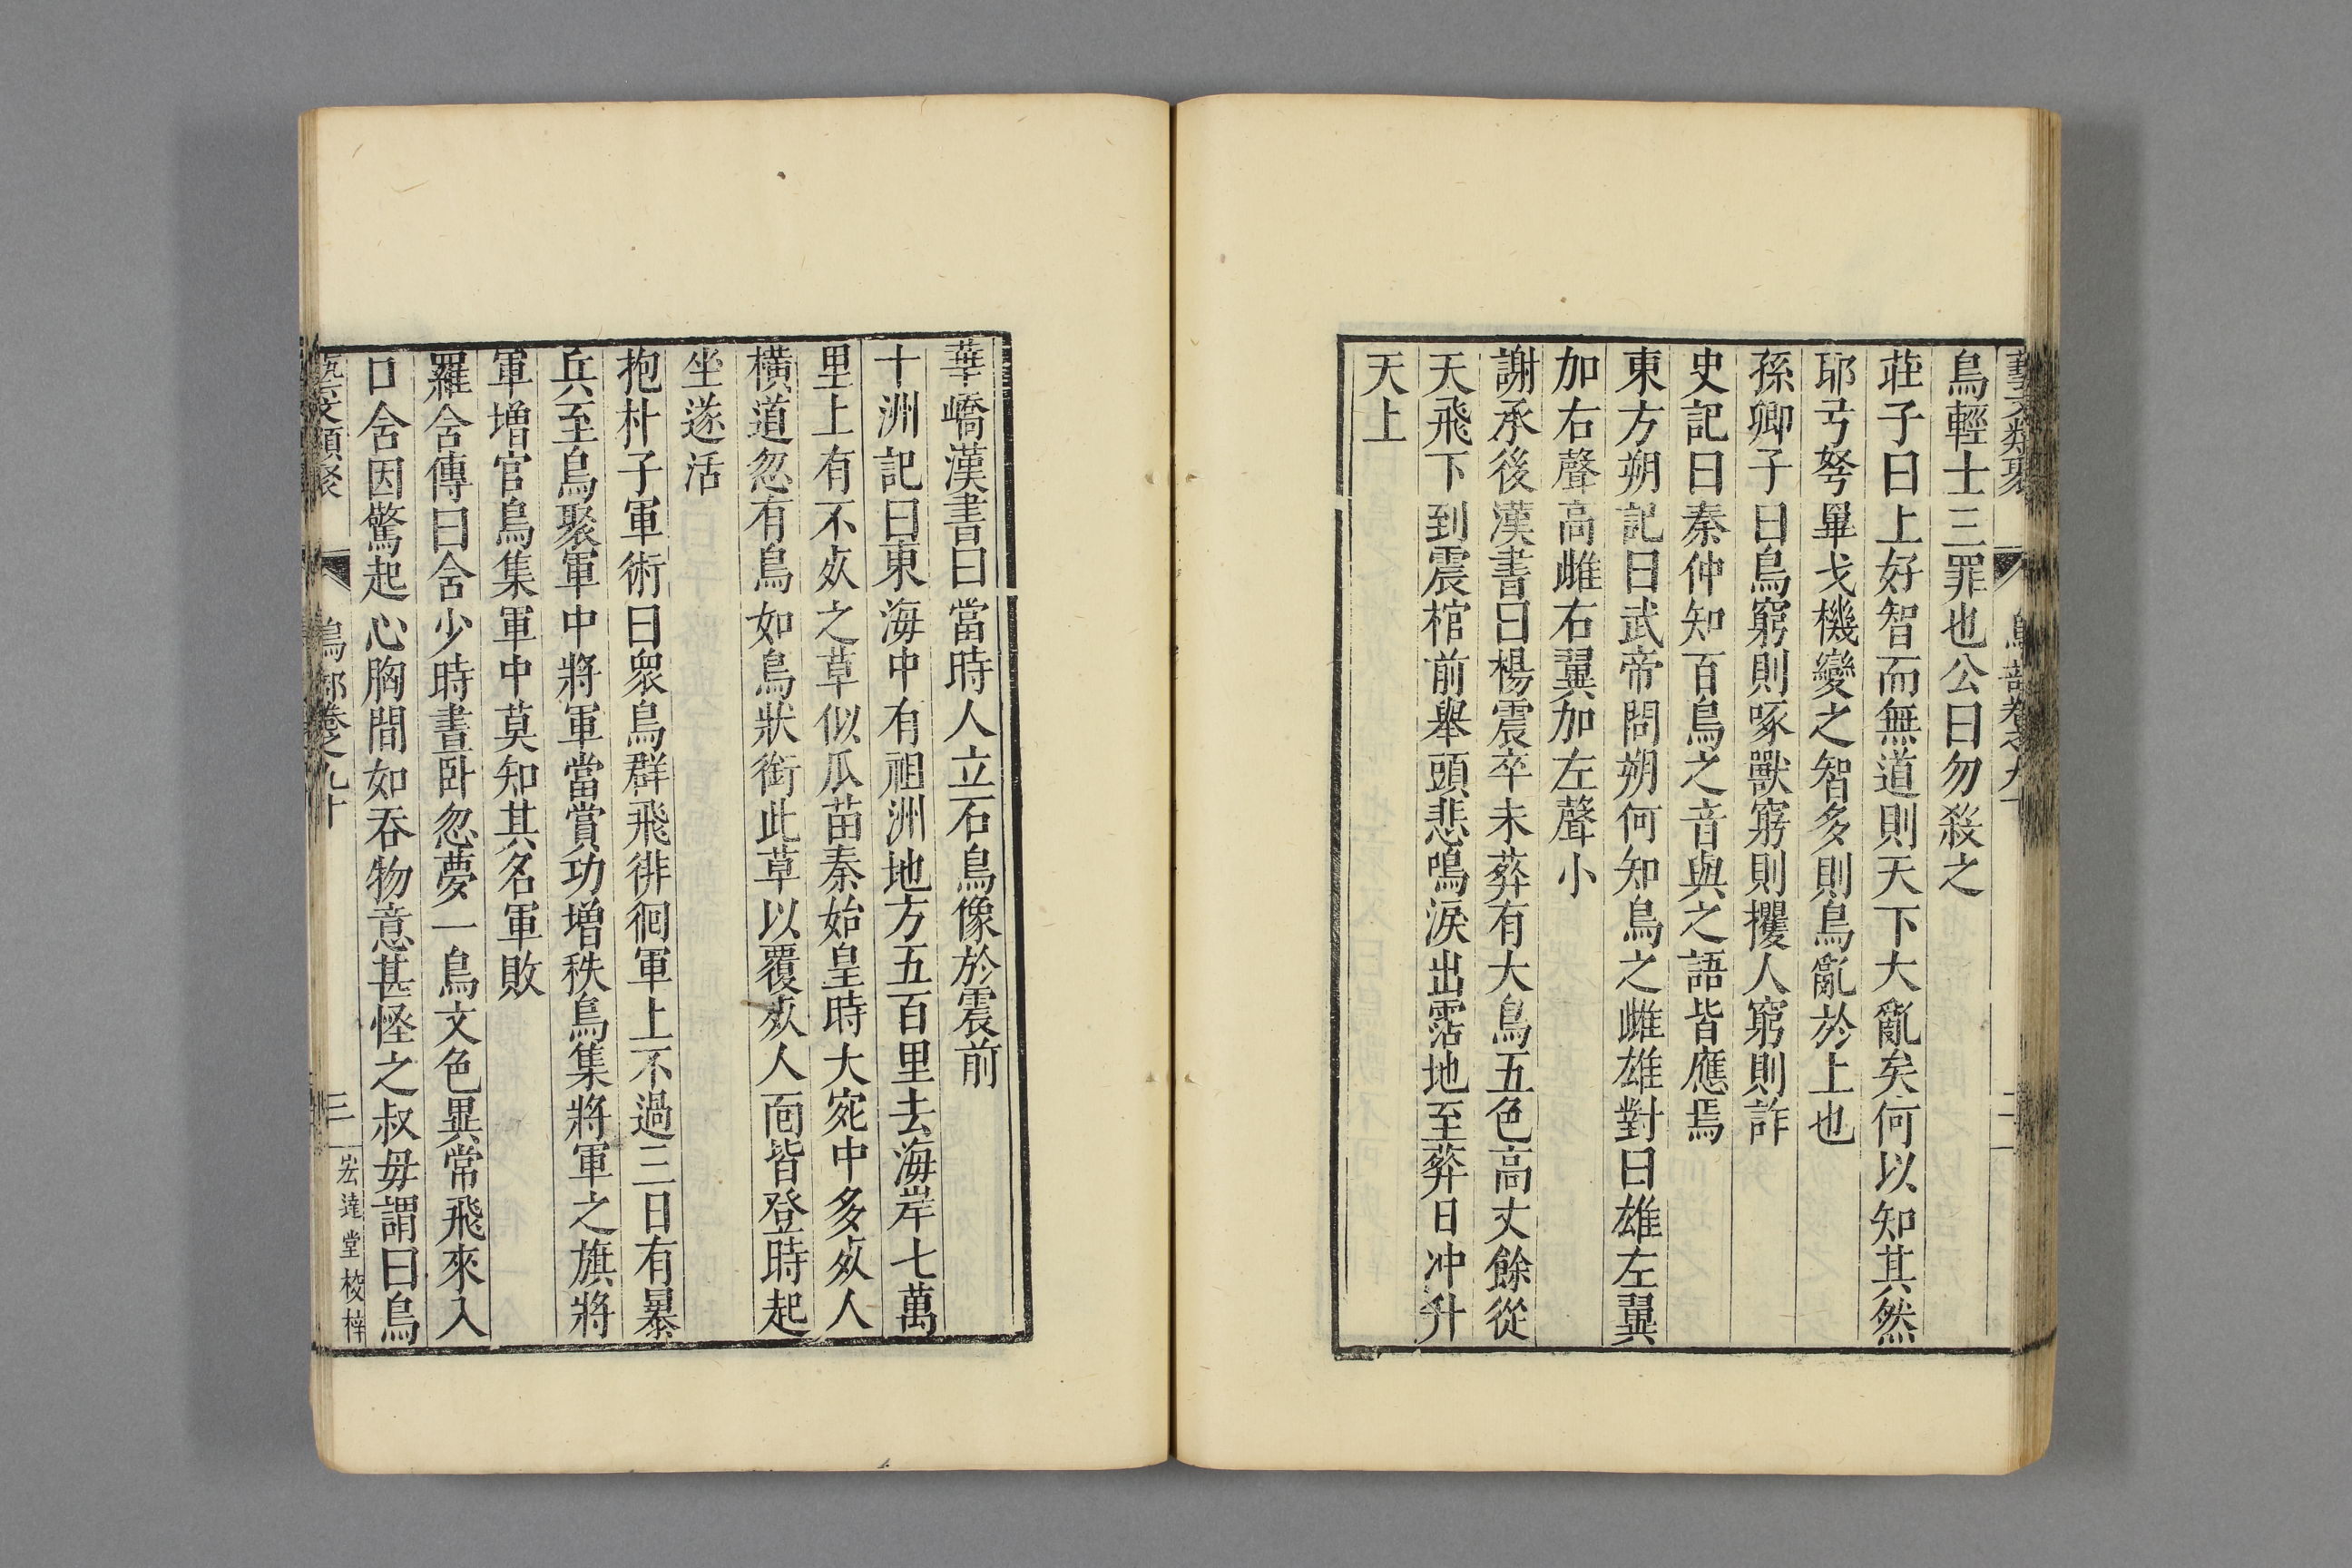 藝文類聚 鳥部卷之九十 二
鳥輕士三罪也公曰勿殺之
莊子曰上好智而無道則天下大亂矣何以知其然
耶弓弩畢戈機變之智多則鳥亂於上也
孫卿子曰鳥窮則啄獸窮則攫人窮則詐
史記曰秦仲知百鳥之音與之語皆應焉
東方朔記曰武帝問朔何知鳥之雌雄對曰雄左翼
加右聲高雌右翼加左聲小
謝承後漢書曰楊震卒未葬有大鳥五色高丈餘從
天飛下到震棺前舉頭悲鳴淚出霑地至葬日冲升
天上
華嶠漢書曰當時人立石鳥像於震前
十洲記曰東海中有祖洲地方五百里去海岸七萬
里上有不㱙之草似瓜苗秦始皇時大宛中多㱙人
橫道忽有鳥如烏狀銜此草以覆㱙人面皆登時起
坐遂活
抱朴子軍術曰衆鳥群飛徘徊軍上不過三日有暴
兵至鳥聚軍中將軍當賞功增秩鳥集將軍之旗將
軍增官鳥集軍中莫知其名軍敗
羅含傳曰含少時晝卧忽夢一鳥文色異常飛來入
口含因驚起心胸間如吞物意甚怪之叔母謂曰鳥
藝文類聚 鳥部卷之九十 三 宏達堂校梓